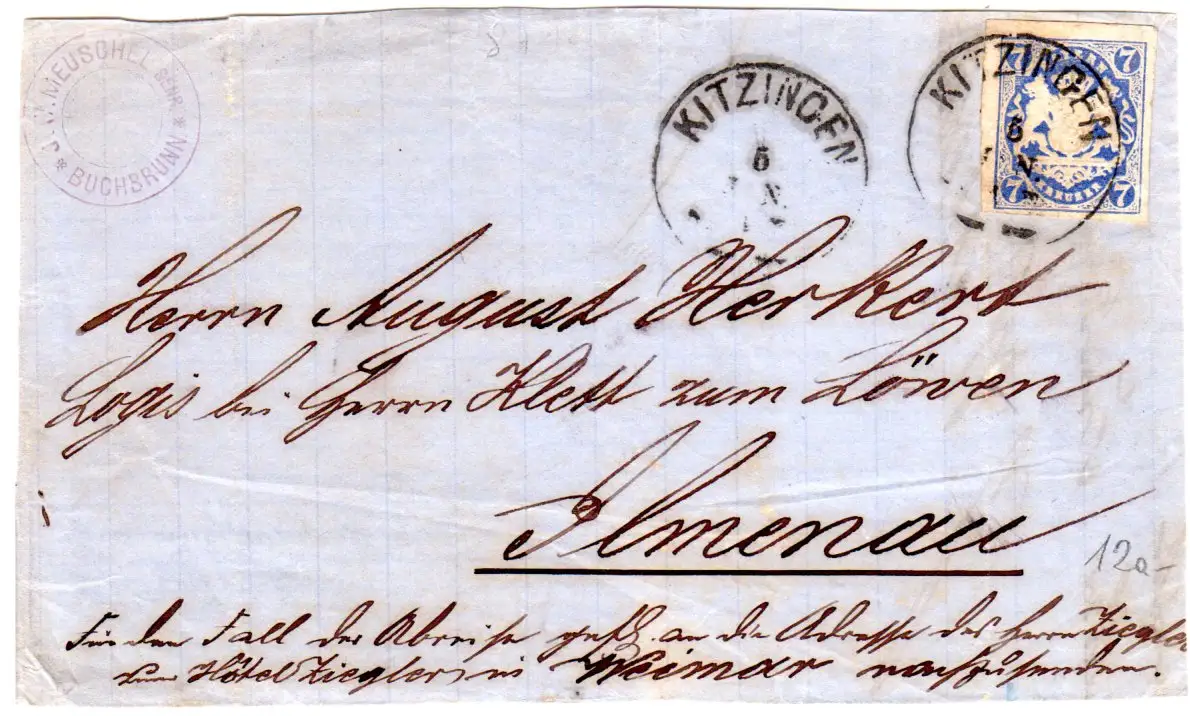 J. W. MEUSCHEL SENR. * BUCHBRUNN *
KITZINGEN
6
KITZINGEN
6
7 7
7 7
KREUZER
Herrn August Herkert
Logis bei Herrn Klett zum Löwen
Ilmenau
12a-
Für den Fall der Abreise gefl. an die Adresse des Herrn Ziegler
zum Hôtel Ziegler in Weimar nachzusenden.